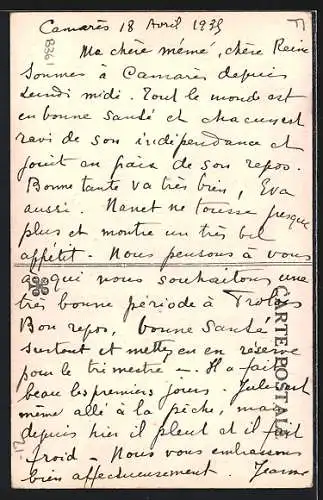 Camarès 18 Avril 1935
Ma chère mémé, chère Reine
Sommes à Camarès depuis
Lundi midi. Tout le monde est
en bonne santé et chacun est
ravi de son indépendance et
jouit en paix de son repos.
Bonne tante va très bien, Eva
aussi. Nanet ne tousse presque
plus et montre un très bel
appétit. Nous pensons à vous
à qui nous souhaitons une
très bonne période à
Bon repos, bonne santé
surtout et mettez en en réserve
pour le trimestre - Il a fait
beau les premiers jours. Jules est
même allé à la pêche, mais
depuis hier il pleut et il fait
froid - Nous vous embrassons
bien affectueusement. Jeanne
CARTE POSTALE
8361